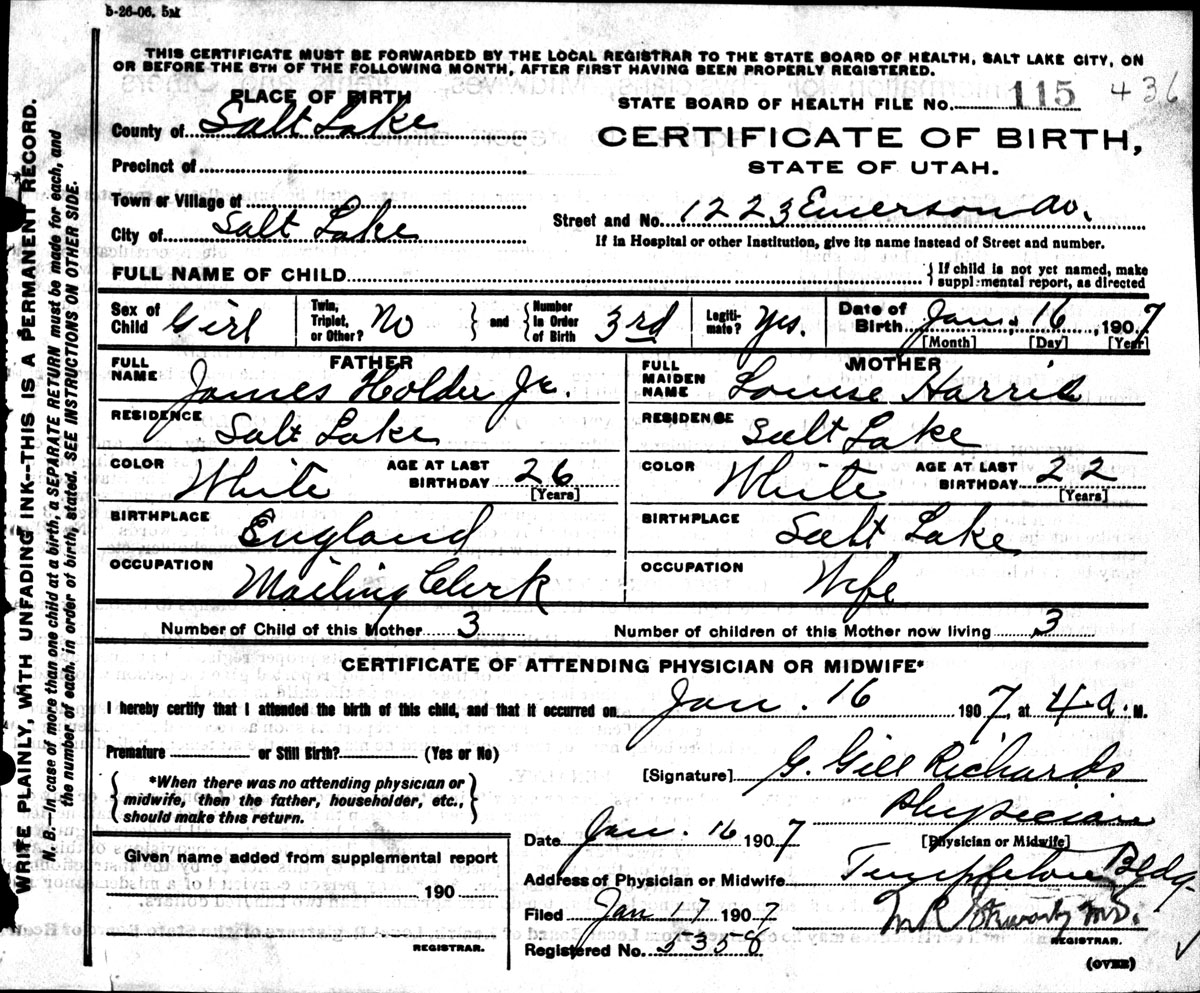 5-26-06. 5M
THIS CERTIFICATE MUST BE FORWARDED BY THE LOCAL REGISTRAR TO THE STATE BOARD OF HEALTH, SALT LAKE CITY, ON
OR BEFORE THE 5TH OF THE FOLLOWING MONTH, AFTER FIRST HAVING BEEN PROPERLY REGISTERED.
PLACE OF BIRTH
STATE BOARD OF HEALTH FILE No. 115 436
County of Salt Lake
CERTIFICATE OF BIRTH,
STATE OF UTAH.
Precinct of
Town or Village of
City of Salt Lake
Street and No. 1223 Emerson Av.
If in Hospital or other Institution, give its name instead of Street and number.
FULL NAME OF CHILD
If child is not yet named, make
supplemental report, as directed
Sex of Child Girl Twin, Triplet, or Other? No and Number in Order of Birth 3rd Legiti-mate? Yes. Date of Birth Jan. 16, 1907
[Month] [Day] [Year]
FATHER
FULL NAME James Holder Jr.
RESIDENCE Salt Lake
COLOR White AGE AT LAST BIRTHDAY 26 [Years]
BIRTHPLACE England
OCCUPATION Mailing Clerk
MOTHER
FULL MAIDEN NAME Louise Harris
RESIDENCE Salt Lake
COLOR White AGE AT LAST BIRTHDAY 22 [Years]
BIRTHPLACE Salt Lake
OCCUPATION Wife
Number of Child of this Mother 3 Number of children of this Mother now living 3
CERTIFICATE OF ATTENDING PHYSICIAN OR MIDWIFE*
I hereby certify that I attended the birth of this child, and that it occurred on Jan. 16 1907, at 4 a. M.
Premature or Still Birth? (Yes or No)
*When there was no attending physician or
midwife, then the father, householder, etc.,
should make this return.
[Signature] G. Gill Richards
Physician
[Physician or Midwife]
Date Jan. 16 1907
Given name added from supplemental report
190
REGISTRAR.
Address of Physician or Midwife Templeton Bldg
Filed Jan 17 1907
M.D.
REGISTRAR.
Registered No. 5358
(OVER)
WRITE PLAINLY, WITH UNFADING INK--THIS IS A PERMANENT RECORD.
N. B.--In case of more than one child at a birth, a SEPARATE RETURN must be made for each, and
the number of each, in order of birth, stated. SEE INSTRUCTIONS ON OTHER SIDE.